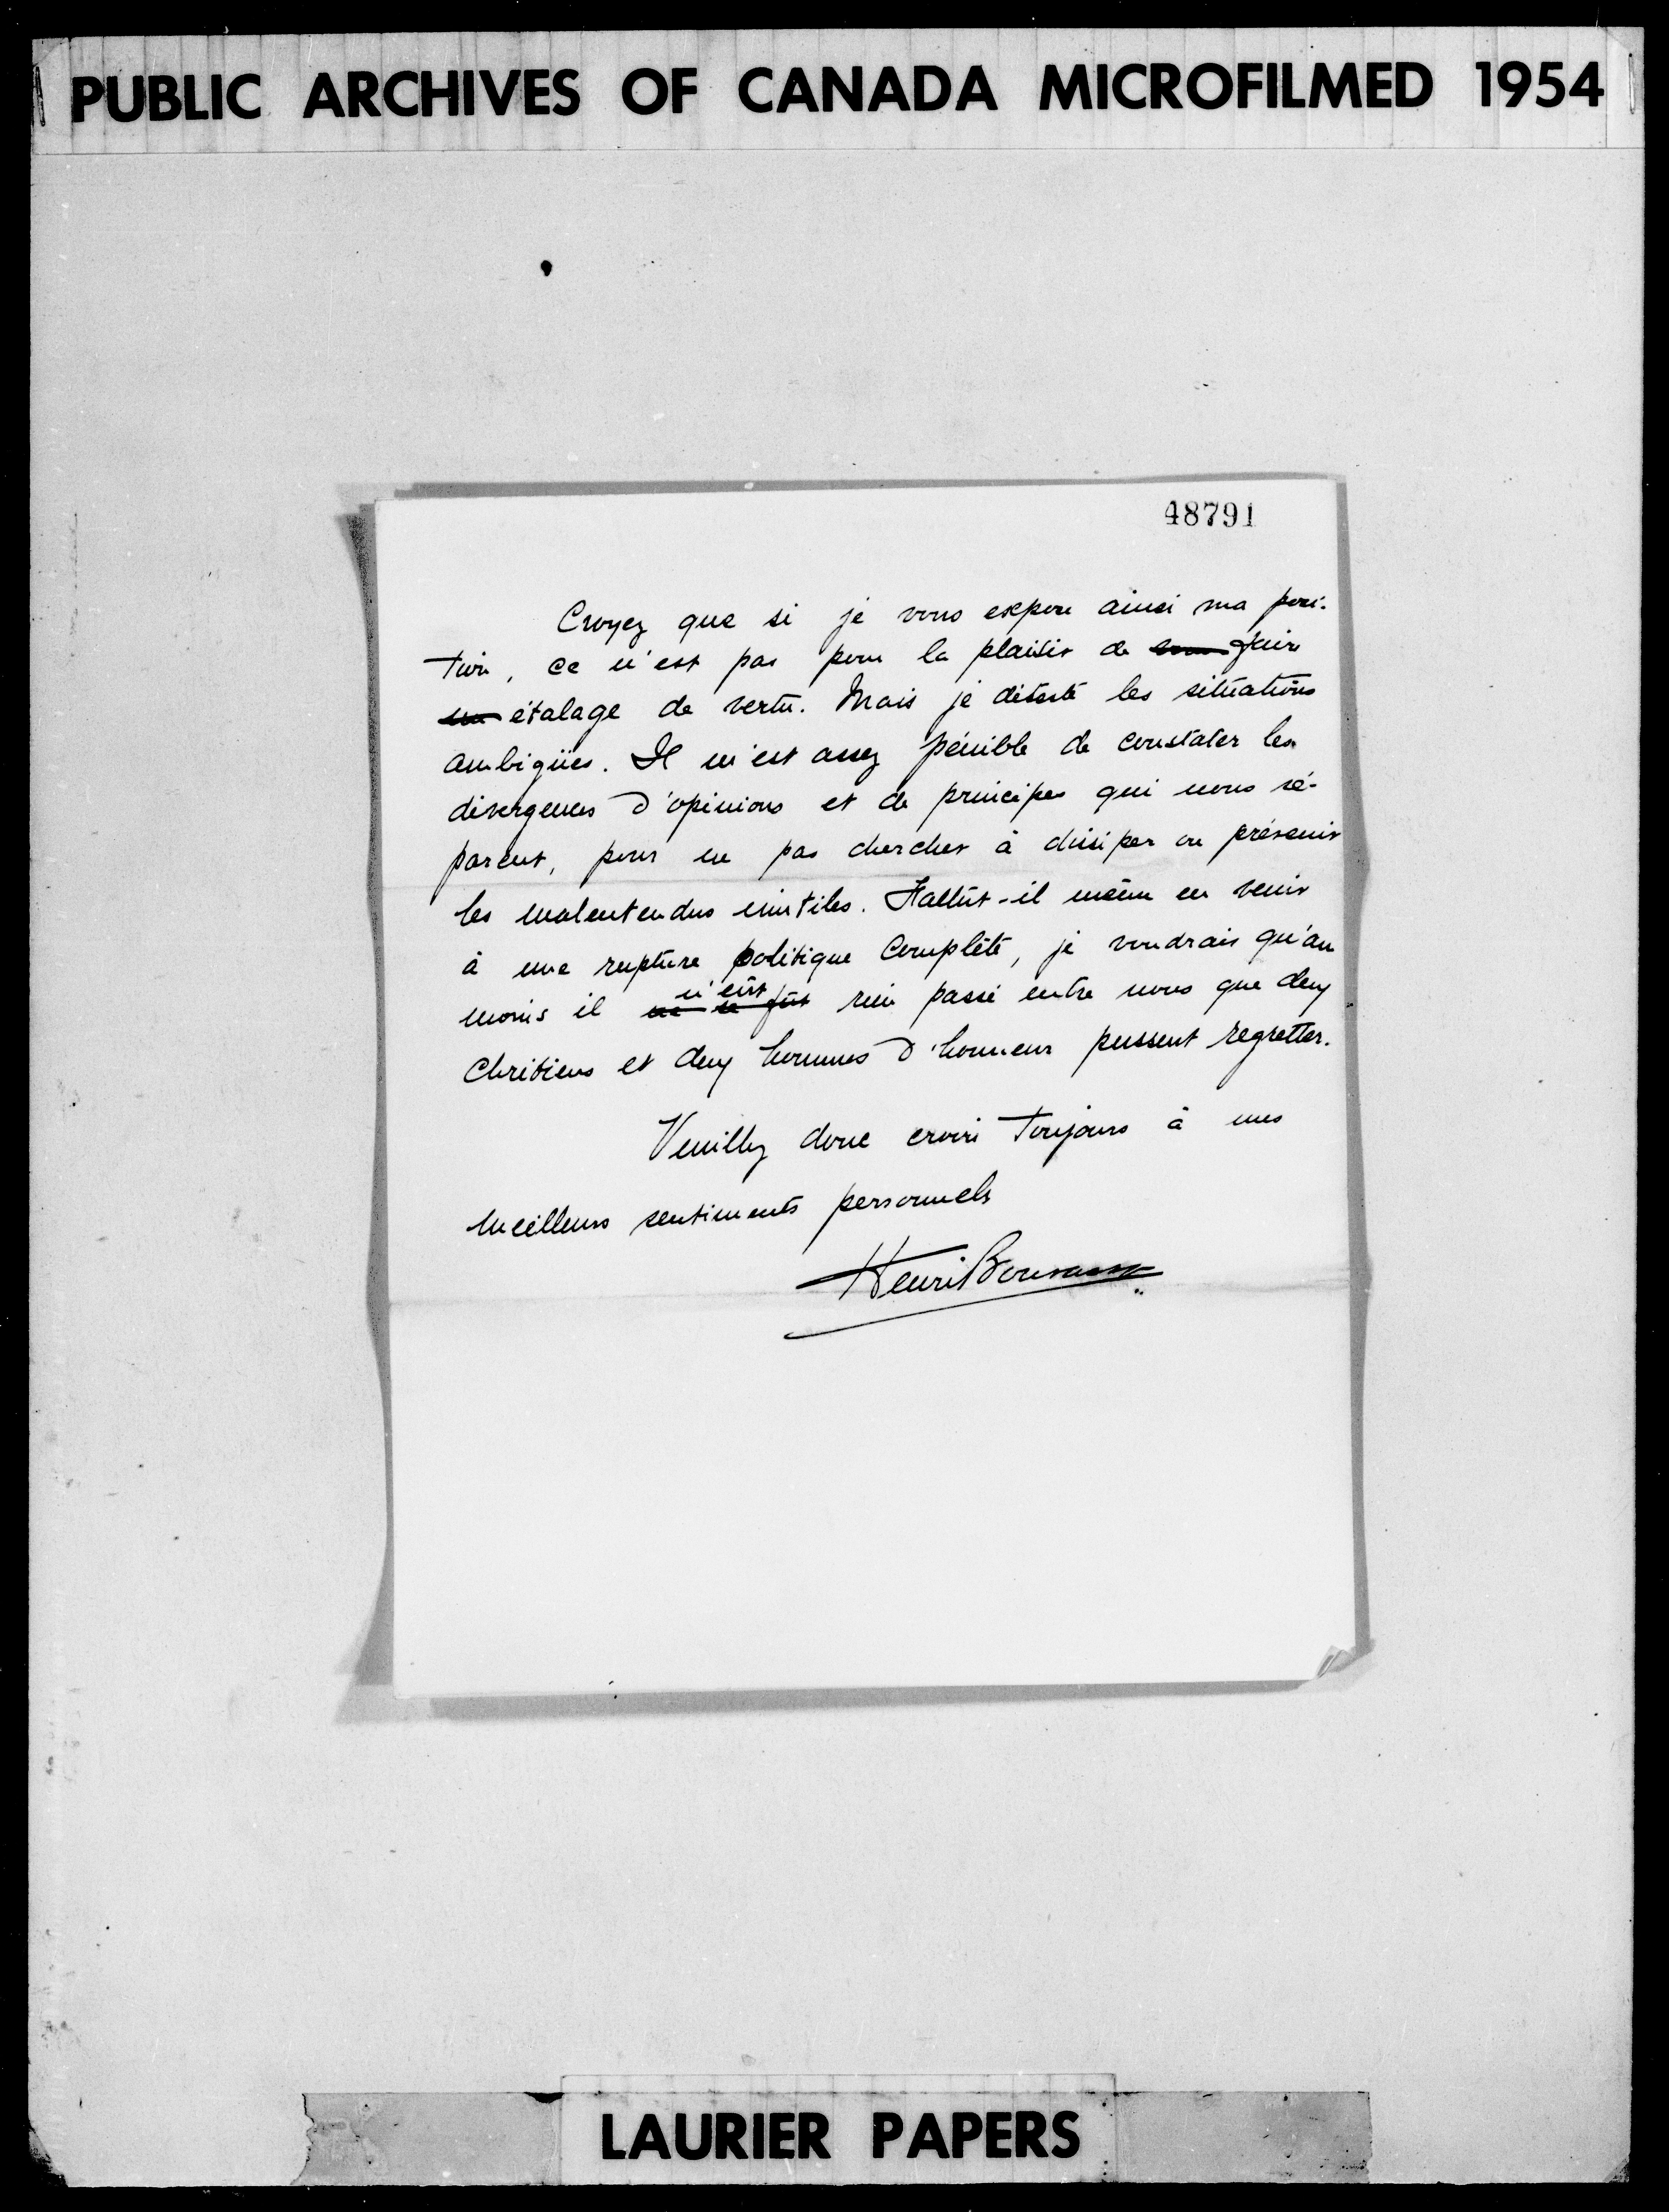 PUBLIC ARCHIVES OF CANADA MICROFILMED 1954
48791
Croyez que si je vous expose ainsi ma posi-
tion, ce n'est pas pour le plaisir de faire
un étalage de vertu. Mais je déteste les situations
ambigües. Il m'est assez pénible de constater les
divergences d'opinions et de principes qui nous sé-
parent, pour ne pas chercher à dissiper ou prévenir
les malentendus inutiles. Fallût-il même en venir
à une rupture politique complète, je voudrais qu'au
moins il ne se fût n'eût rien passé entre nous que deux
chrétiens et deux hommes d'honneur pussent regretter.
Veuillez donc croire toujours à mes
meilleurs sentiments personnels
Henri Bourassa
LAURIER PAPERS